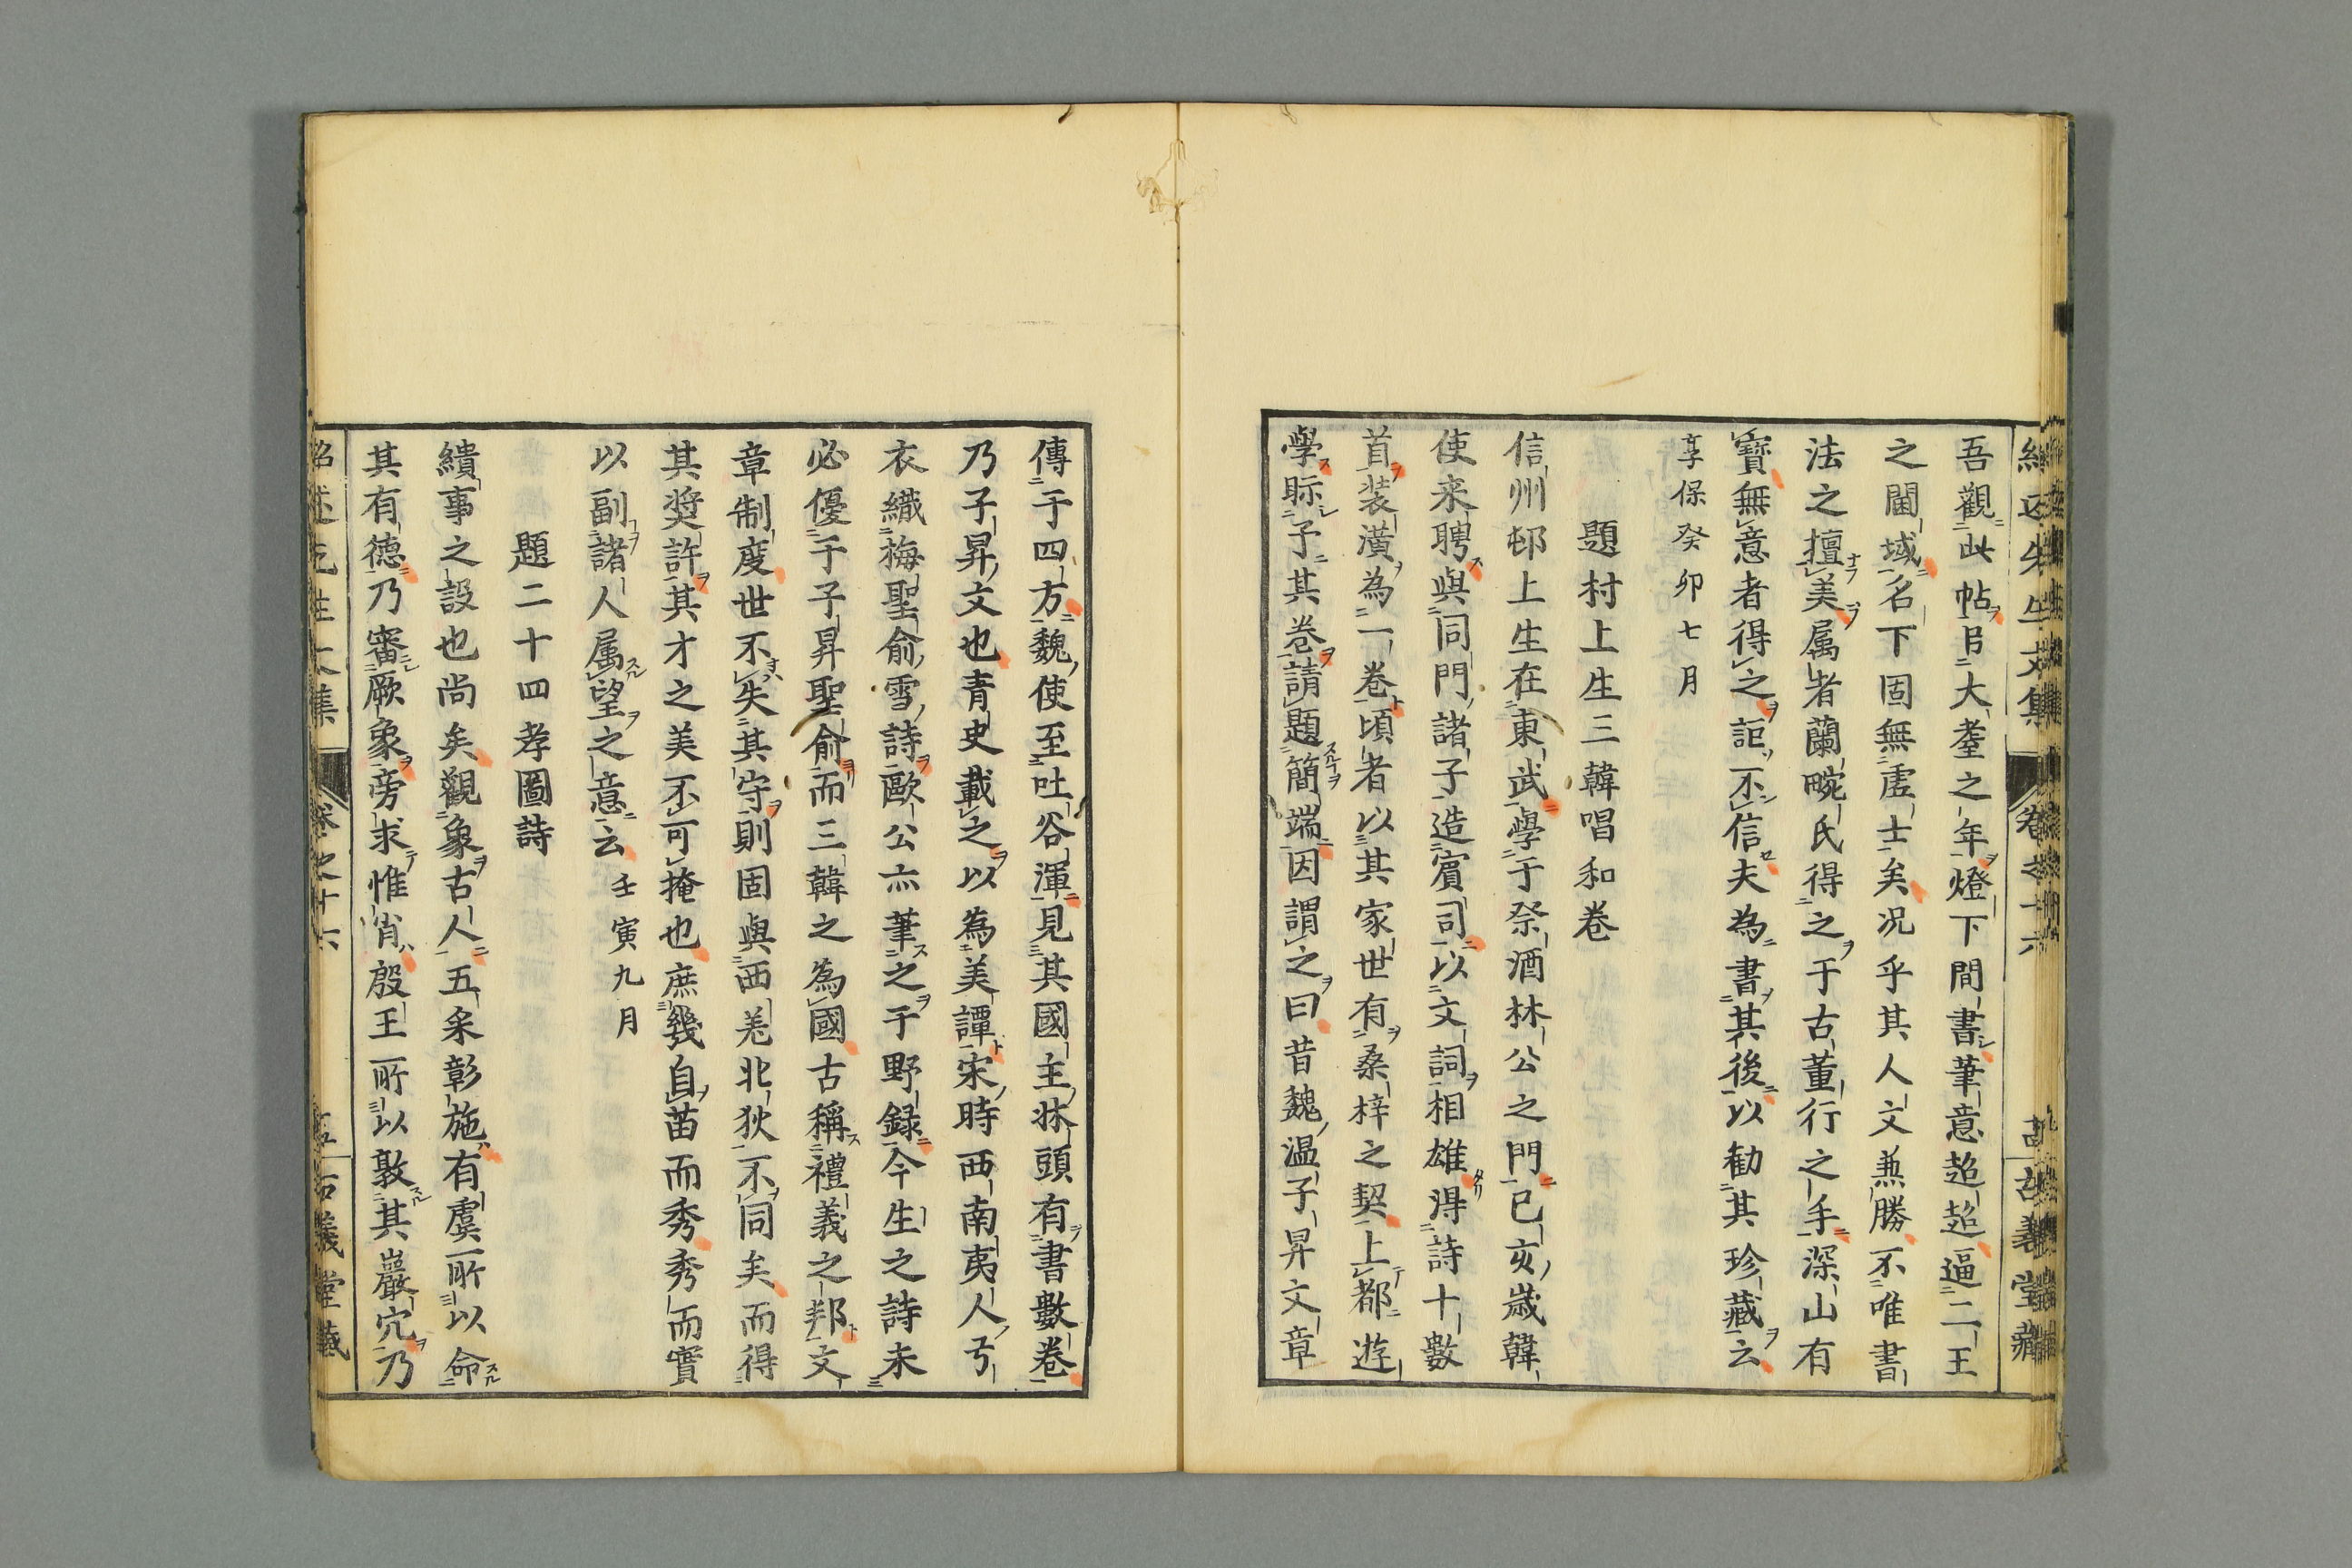 吾觀此帖㠯大耋之年燈下間書筆意超超逼二王
之閫域名下固無虗士矣况乎其人文兼勝不唯書
法之擅美属者蘭畹氏得之于古董行之手深山有
寳無意者得之詎不信夫為書其後以勧其珍藏云
享保癸卯七月
題村上生三韓唱和卷
信州邨上生在東武學于祭酒林公之門已亥歲韓
使来聘與同門諸子造賔司以文詞相雄淂詩十數
首装潢為一卷頃者以其家世有桑梓之契上都遊
學眎予其卷請題簡端因謂之曰昔魏温子昇文章
傳于四方魏使至吐谷渾見其國主牀頭有書數卷
乃子昇文也青史載之以為美譚宋時西南夷人弓
衣織梅聖俞雪詩歐公亦筆之于野録今生之詩未
必優于子昇聖俞而三韓之為國古稱禮義之邦文
章制度世不失其守則固與西羌北狄不同矣而得
其奨許其才之美不可掩也庶幾自苗而秀秀而實
以副諸人属望之意云 壬寅九月
題二十四孝圖詩
繢事之設也尚矣觀象古人五采彰施有虞所以命
其有德乃審厥象旁求惟肖殷王所以敦其巖穴乃
卷之十六
古義堂藏